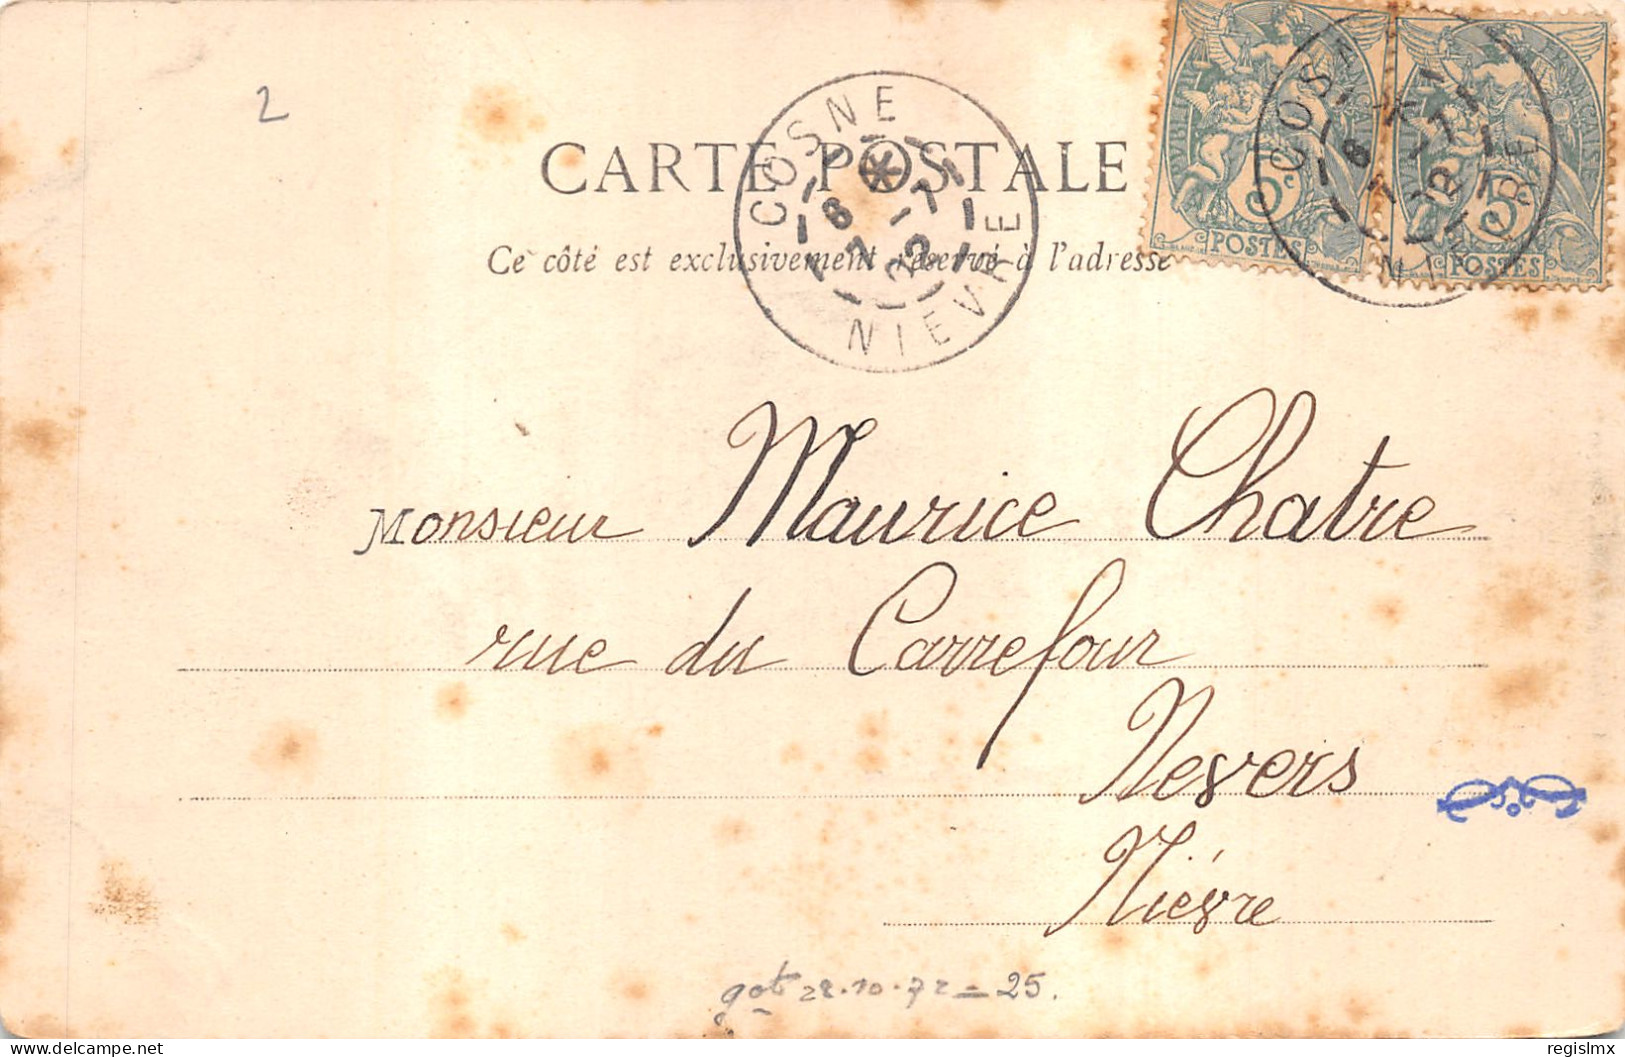 2
CARTE POSTALE
Ce côté est exclusivement réservé à l'adresse
COSNE
NIEVRE
5c
POSTES
5
POSTES
Monsieur Maurice Chatre
rue du Carrefour
Nevers
Niévre
28.10.72 = 25.
https://www.delcampe.net
regislmx